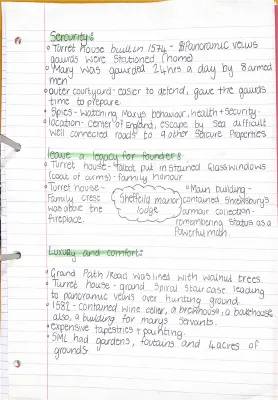 Serourity:
° Turret House built in 1574 - Panoramic vews
gaurds were Stationed (home)
° Mary was gaurded 24hrs a day by 8 armed
men
° outer courtyard - easier to defend, gave the gaurds
time to prepare
° Spies - watching Marys behavour, health + Security.
° location - Center of England, escape by Sea difficult
well connected roads to 9 other Secure Properties
leave a legacy for founders:
° Turret house - Talbot put in Stained Glass windows
(coat of arms) - family honour
° Turret house -
Family Crest
was above the
fireplace.
Sheffeild manor
lodge
° Main building -
contained Shrewsburys
armour collection -
remembering Status as a
Powerful man.
Luxury and comfort:
° Grand Path/Road was lined with walnut trees.
° Turret house - grand Spiral Staircase leading
to panoramic vews over hunting ground.
° 1582 - contained wine celler, a brewhouse, a bakehouse
also, a building for marys servants.
° expensive tapestries + painting.
° SML had gardens, foutains and 4 acres of
grounds